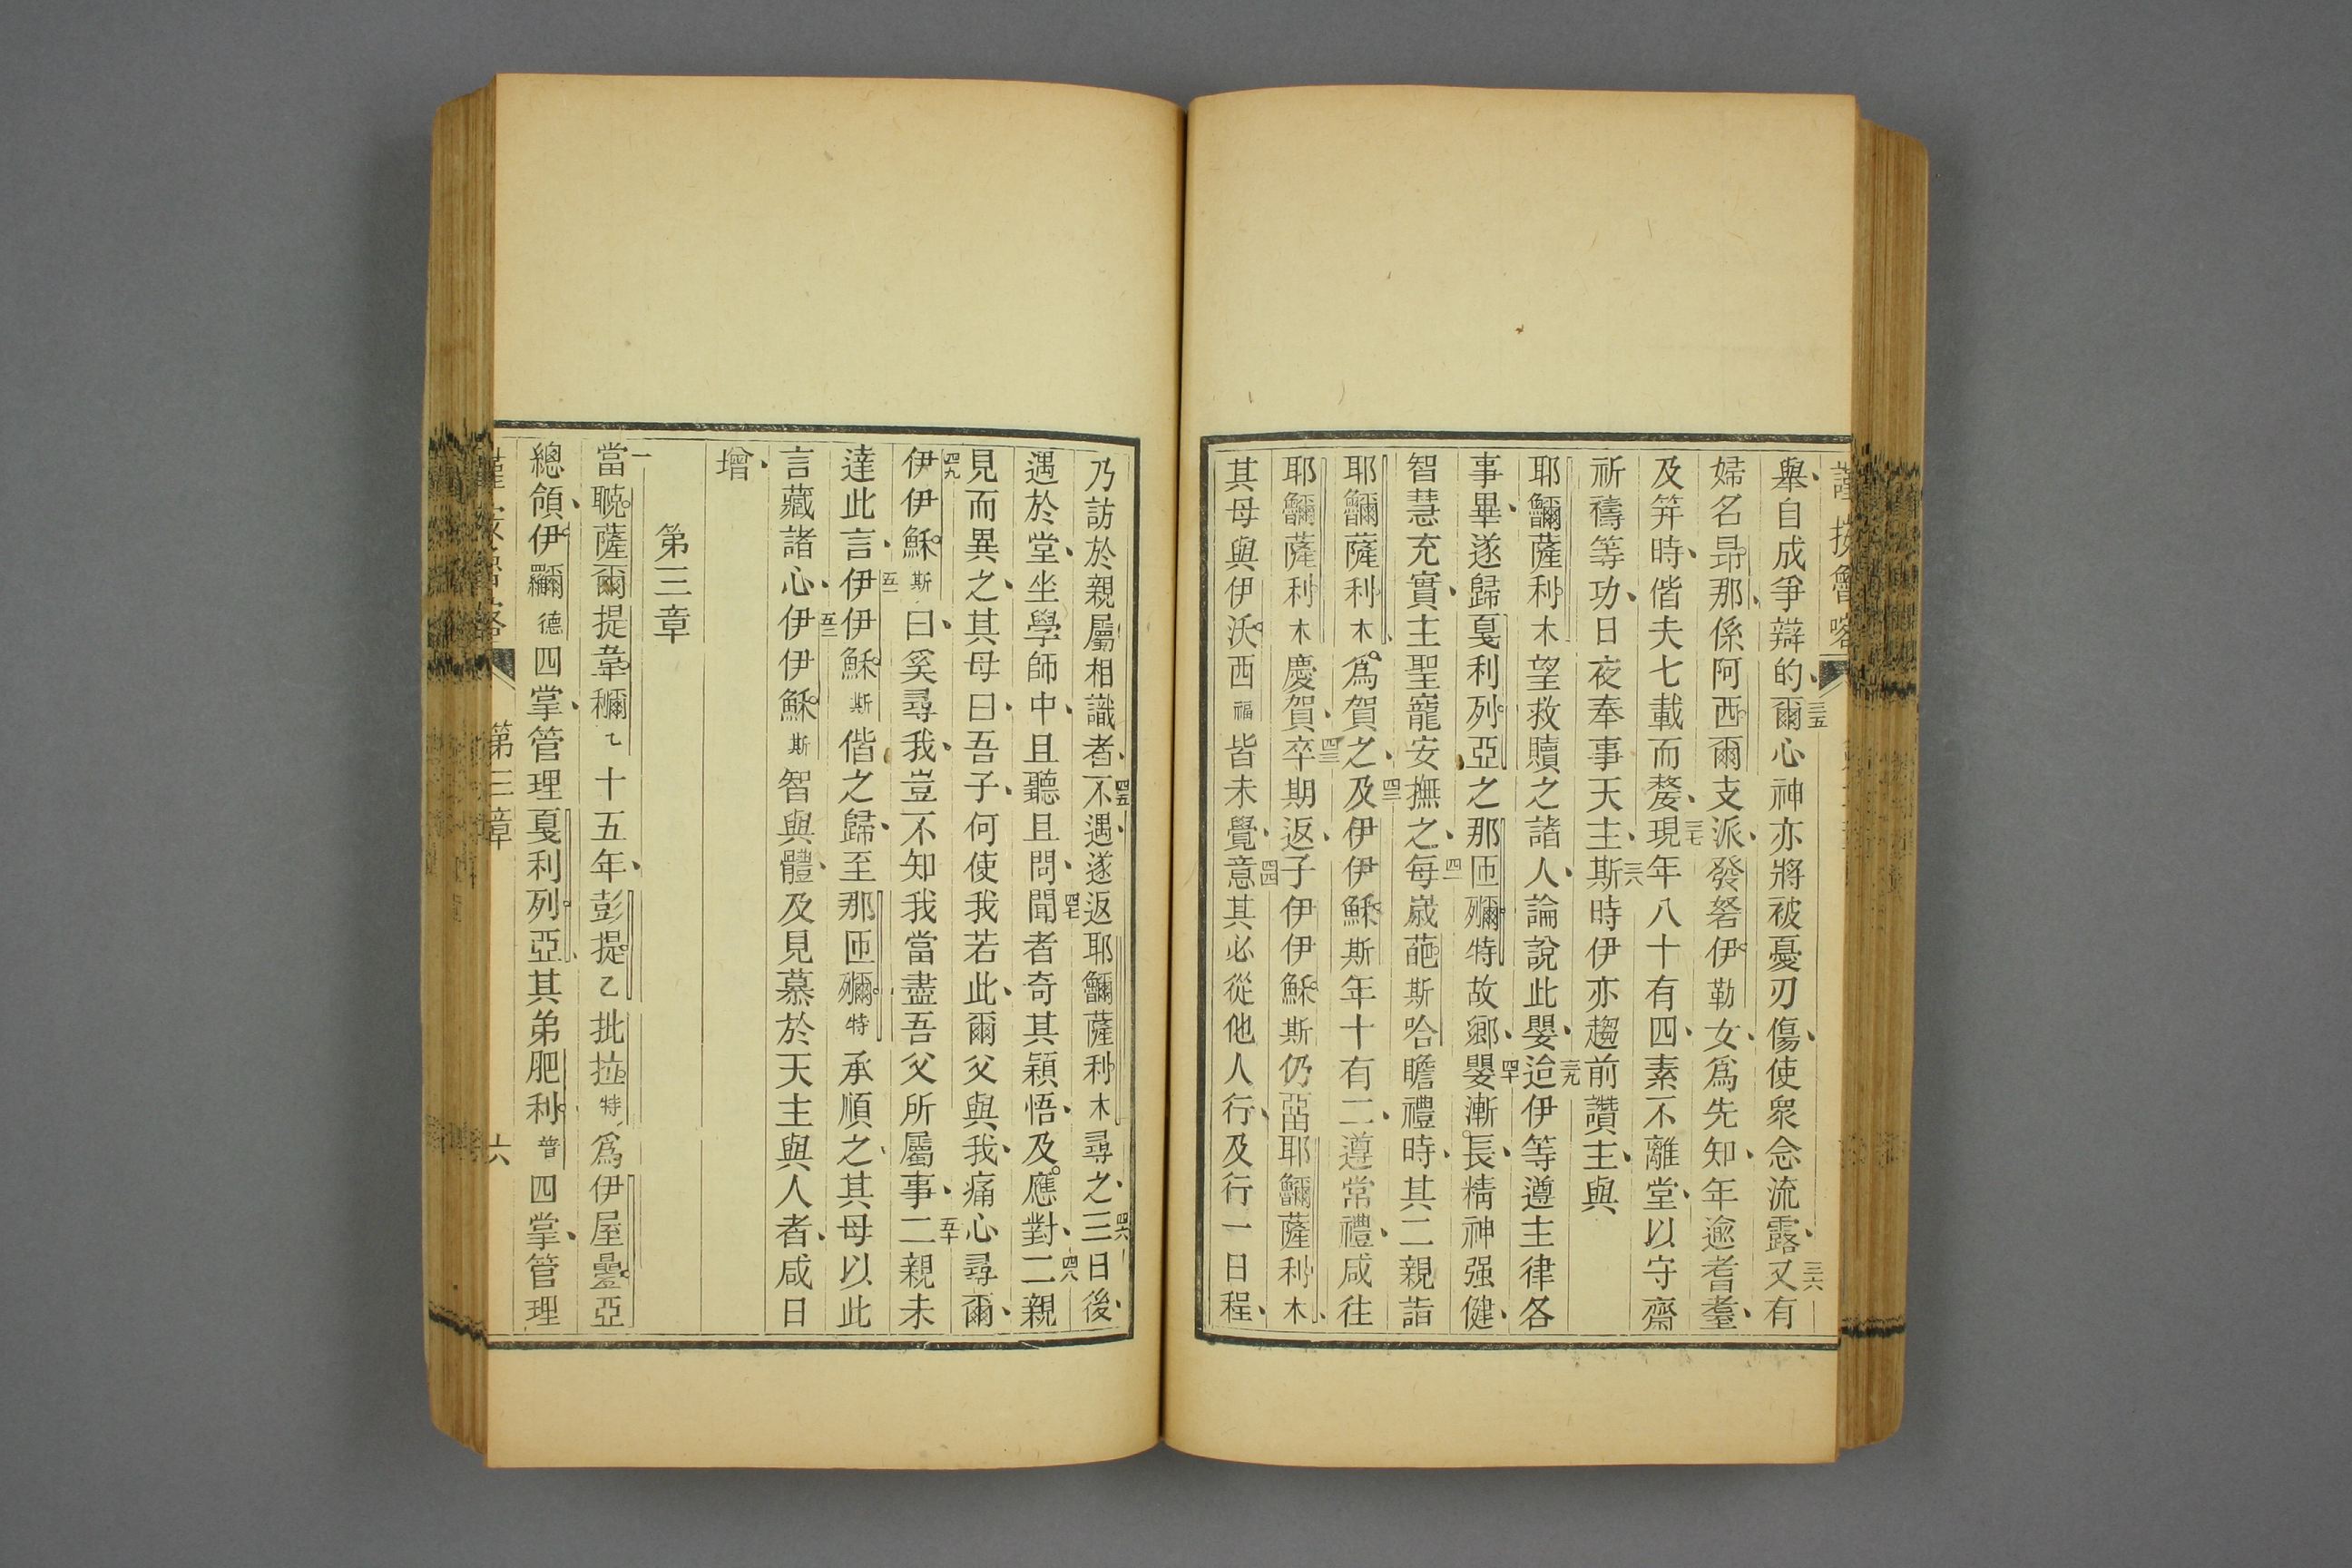 舉自成爭辯的三五爾心神亦將被憂刃傷使衆念流露三六又有
婦名昻那係阿西爾支派發弩伊勒女爲先知年逾耆耋
及笄時偕夫七載而嫠三七現年八十有四素不離堂以守齋
祈禱等功日夜奉事天主三八斯時伊亦趨前讚主與
耶薩利木望救贖之諸人論說此嬰三九迨伊等遵主律各
事畢遂歸戛利列亞之那匝特故鄉四十嬰漸長精神强健
智慧充實主聖寵安撫之四一每嵗葩斯哈瞻禮時其二親詣
耶薩利木爲賀之四二及伊伊穌斯年十有二遵常禮咸往
耶薩利木慶賀四三卒期返子伊伊穌斯仍畱耶薩利木
其母與伊沃西福皆未覺四四意其必從他人行及行一日程
乃訪於親屬相識者四五不遇遂返耶薩利木尋之四六三日後
遇於堂坐學師中且聽且問四七聞者奇其穎悟及應對四八二親
見而異之其母曰吾子何使我若此爾父與我痛心尋爾
四九伊伊穌斯曰奚尋我豈不知我當盡吾父所屬事五十二親未
達此言五一伊伊穌斯偕之歸至那匝特承順之其母以此
言藏諸心五二伊伊穌斯智與體及見慕於天主與人者咸日
增
第三章
一當薩爾提韋乙十五年彭提乙批拉特爲伊屋亞
總領伊德四掌管理戛利列亞其弟肥利普四掌管理
第三章
六